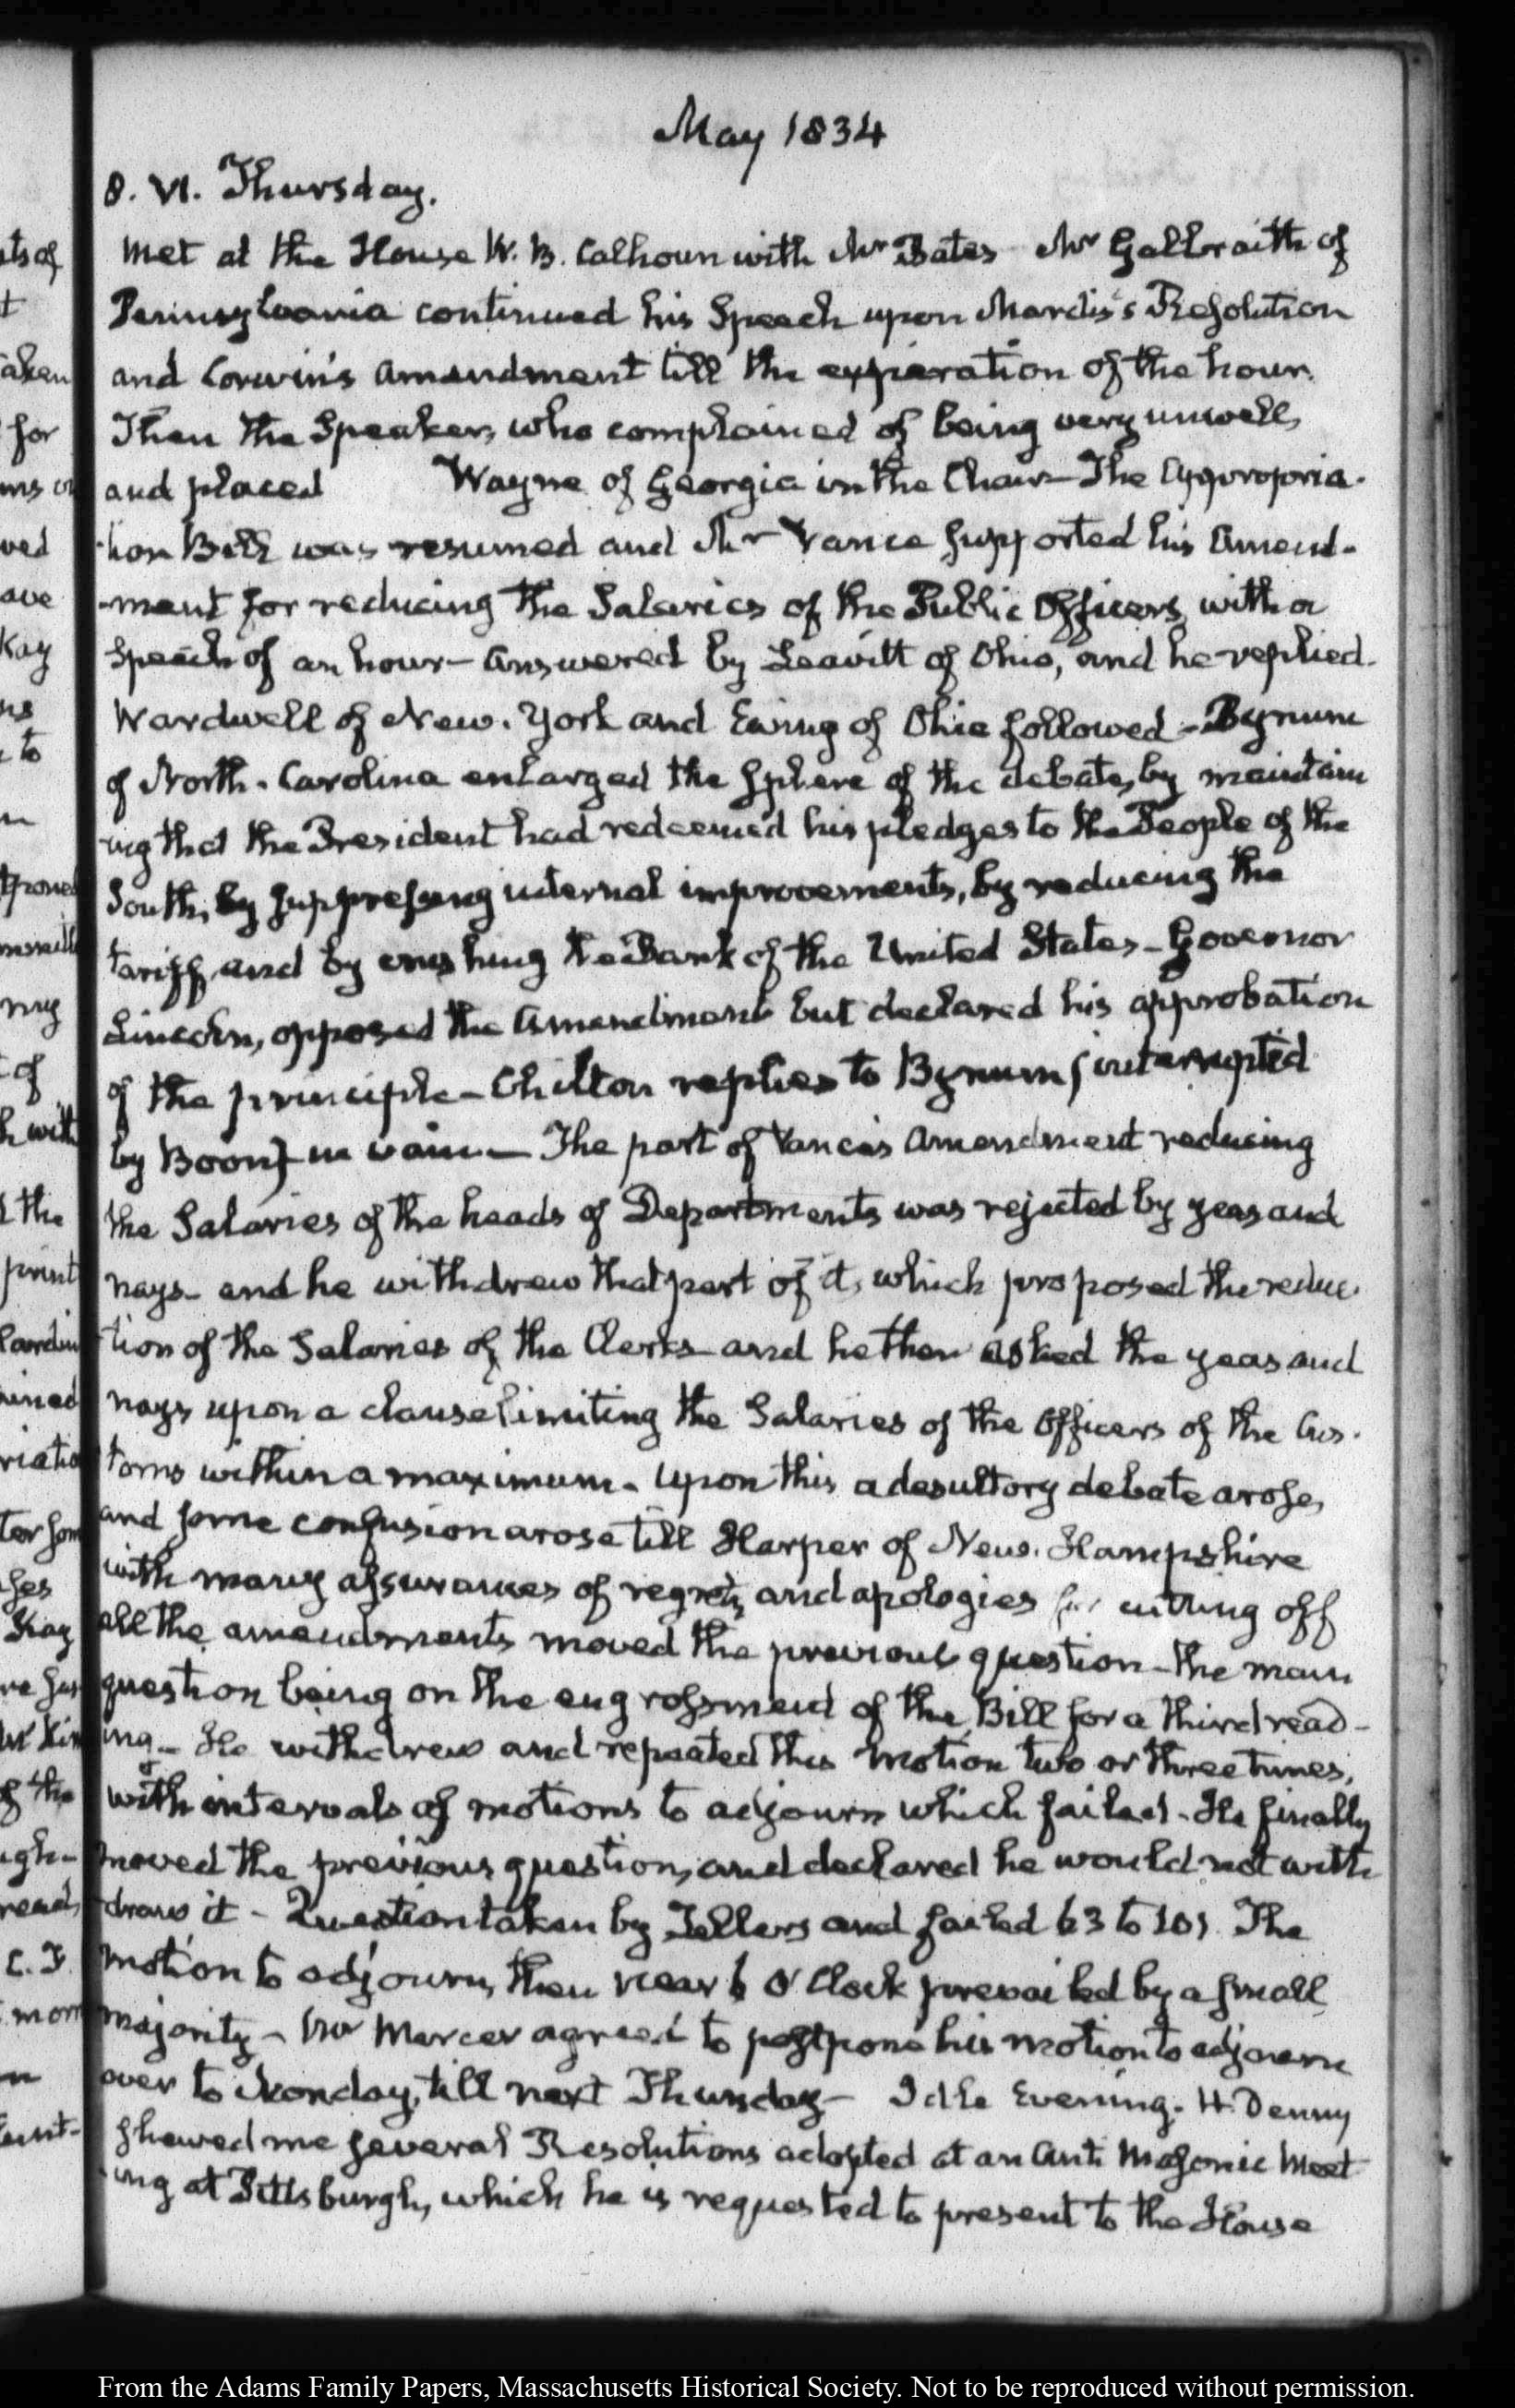 May 1834
8. VI. Thursday.
Met at the House W. B. Calhoun with Mr Bates Mr Galbraith of
Pennsylvania continued his Speech upon Mardis's Resolution
and Corwin's amendment till the expiration of the hour.
Then the Speaker, who complained of being very unwell,
and placed Wayne of Georgia in the Chair - The Appropria-
-tion Bill was resumed and Mr Vance supported his Amend-
-ment for reducing the Salaries of the Public Officers, with a
Speech of an hour - answered by Leavitt of Ohio, and he replied.
Wardwell of New-York and Ewing of Ohio followed - Bynum
of North-Carolina enlarged the sphere of the debate, by maintain
ing that the President had redeemed his pledges to the People of the
South, by suppressing internal improvements, by reducing the
tariff, and by crushing the Bank of the United States - Governor
Lincoln, opposed the Amendment but declared his approbation
of the principle - Chilton replies to Bynum (interrupted
by Boon) in vain - The part of Vance's amendment reducing
the Salaries of the heads of Departments was rejected by yeas and
nays - and he withdrew that part of it, which proposed the reduc-
-tion of the Salaries of the Clerks - and he then asked the yeas and
nays upon a clause limiting the Salaries of the Officers of the Cus-
toms within a maximum - Upon this a desultory debate arose,
and some confusion arose till Harper of New-Hampshire
with many assurances of regret, and apologies for cutting off
all the amendments moved the previous question - the main
question being on the engrossment of the Bill for a third read-
ing - He withdrew and repeated this motion two or three times,
with intervals of motions to adjourn which failed - He finally
moved the previous question, and declared he would not with
-draw it - Question taken by Tellers and failed 63 to 101. The
motion to adjourn, then near 6 O'Clock prevailed by a small
majority - Mr Mercer agreed to postpone his motion to adjourn
over to Monday, till next Thursday - Idle Evening. H. Denny
shewed me several Resolutions adopted at an Anti Masonic Meet
-ing at Pittsburgh, which he is requested to present to the House
From the Adams Family Papers, Massachusetts Historical Society. Not to be reproduced without permission.